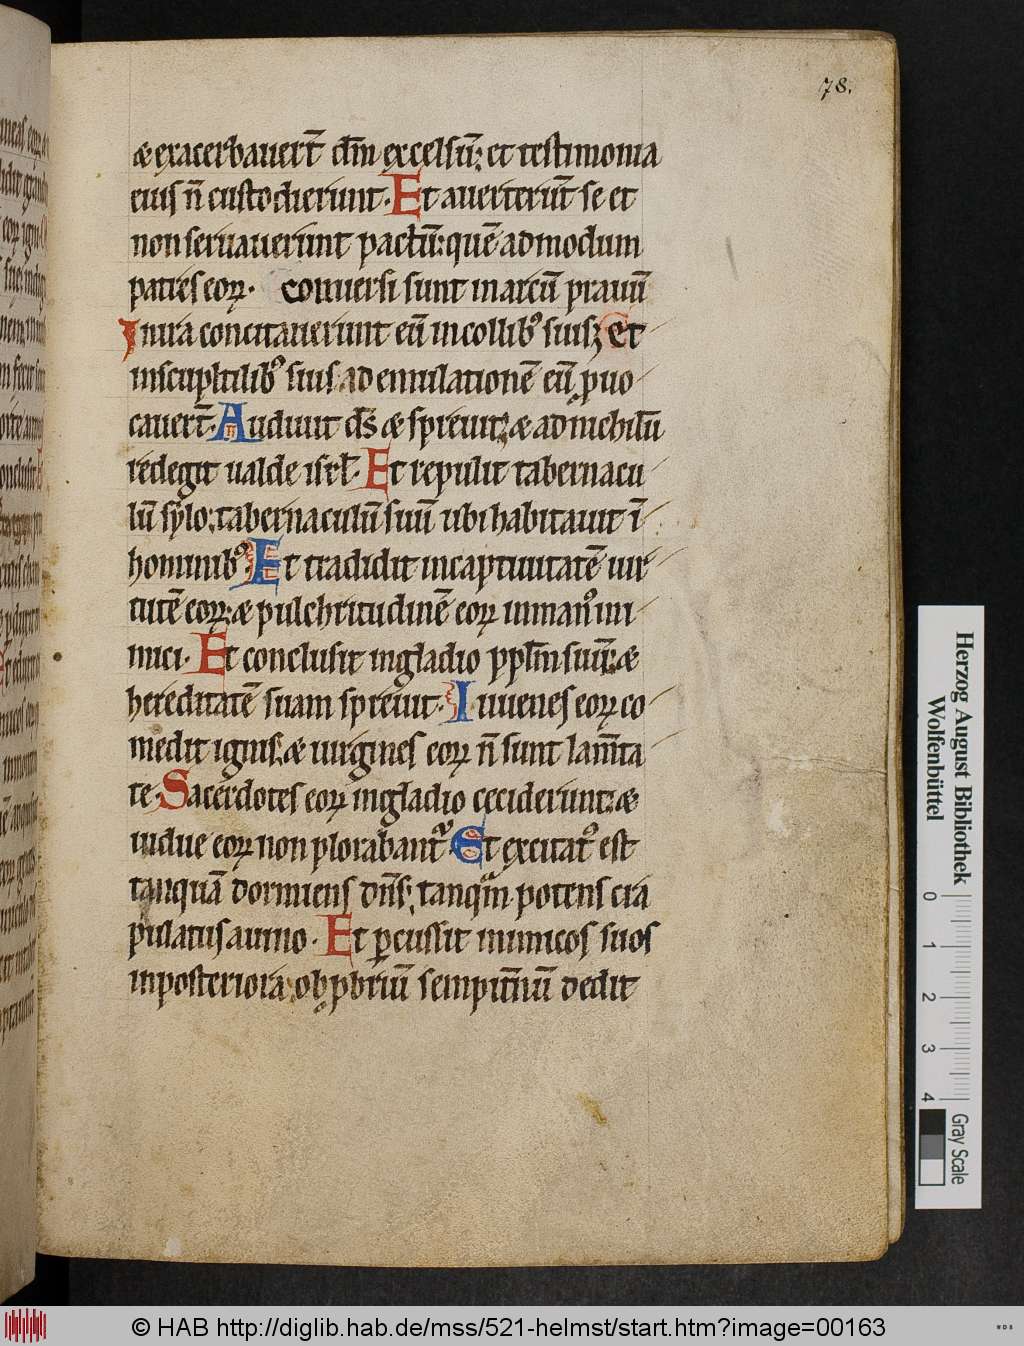 78.
æ exacerbauert̄ dm̄ excelsū; et testimonia
eius n̄ custodierunt. Et auerterūt se et
non seruauerunt pactū: quē admodum
patres eoꝝ. conuersi sunt in arcū prauū
In ira concitauerunt eū in collibꝰ suis; et
in sculptilibꝰ suis ad emulationē eū ꝓuo
cauert̄. Audiuit ds̄ æ spreuit; æ ad nichilū
redegit ualde isrl̄. Et repulit tabernacu
lū sylo; tabernaculū suū ubi habitauit ī
hominibꝰ. Et tradidit in captiuitatē uir
tutē eoꝝ: æ pulchritudinē eoꝝ in manꝰ ini
mici. Et conclusit in gladio ppl̄m suū; æ
hereditatē suam spreuit. Iuuenes eoꝝ co
medit ignis; æ uirgines eoꝝ n̄ sunt lam̄ta
te. Sacerdotes eoꝝ in gladio ceciderunt; æ
uidue eoꝝ non plorabant᷑. Et excitatꝰ est
tanquā dormiens dn̄s; tanqᷓm potens cra
pulatus a uino. Et ꝑcussit inimicos suos
in posteriora obꝓbriū sempit̄nū dedit
Herzog August Bibliothek
Wolfenbüttel
0 1 2 3 4
Gray Scale
© HAB http://diglib.hab.de/mss/521-helmst/start.htm?image=00163